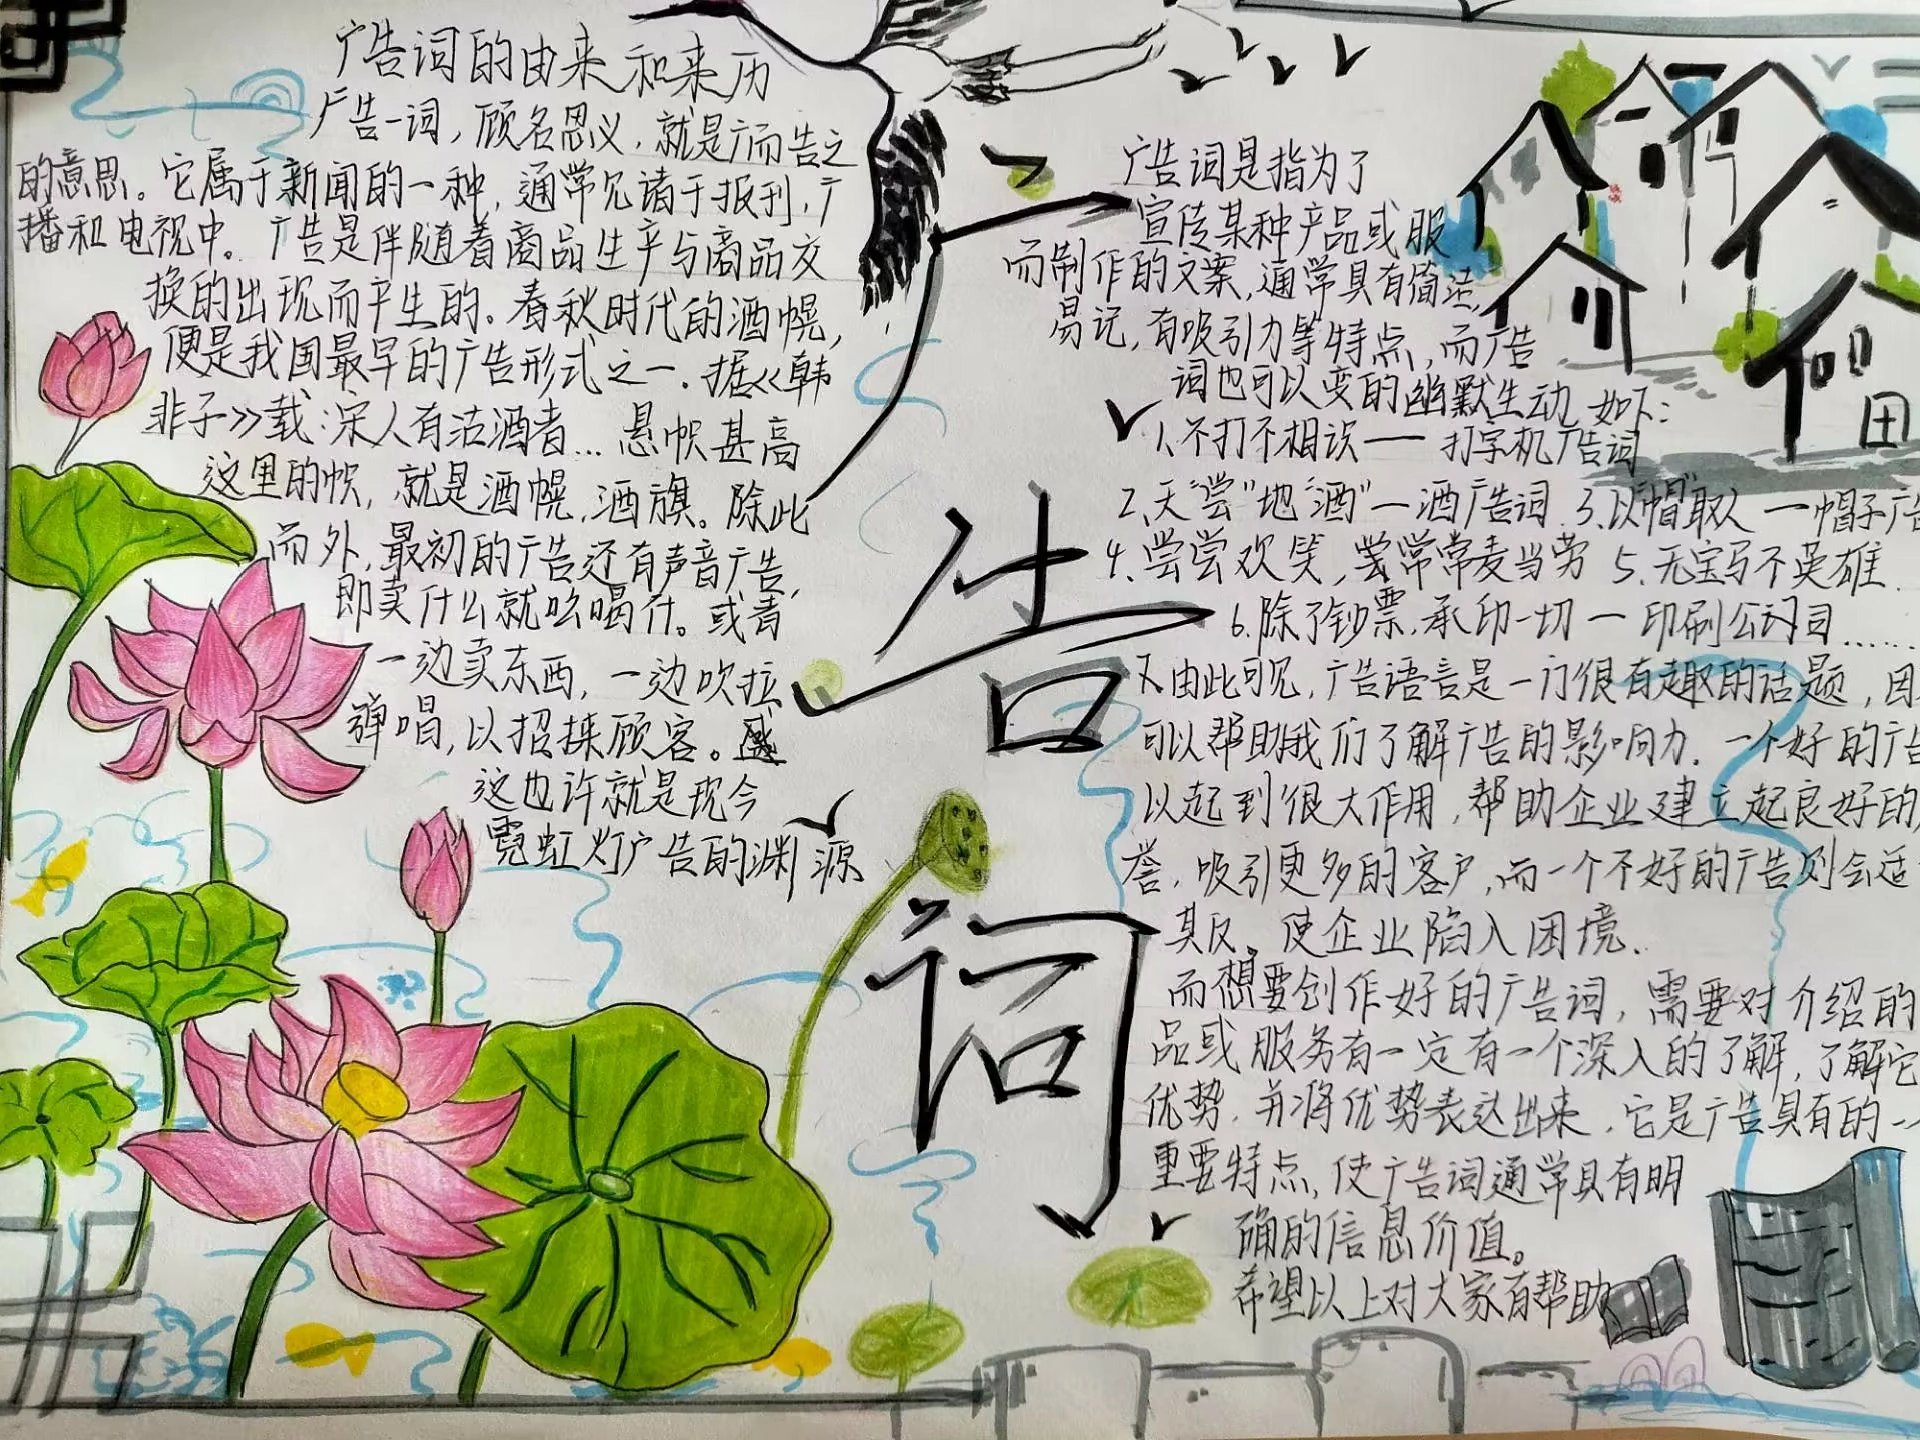 广告词的由来和来历
广告一词，顾名思义，就是广而告之
的意思。它属于新闻的一种，通常见诸于报刊，广
播和电视中。广告是伴随着商品生产与商品交
换的出现而产生的。春秋时代的酒幌，
便是我国最早的广告形式之一。据《韩
非子》载：宋人有沽酒者…悬帜甚高
这里的帜，就是酒幌，酒旗。除此
而外，最初的广告还有声音广告，
即卖什么就吆喝什。或者
一边卖东西，一边吹拉
弹唱，以招揽顾客。
这也许就是现今
霓虹灯广告的渊源
广告词
广告词是指为了
宣传某种产品或服
而制作的文案，通常具有简洁，
易记，有吸引力等特点，而广告
词也可以变的幽默生动，如下：
1.不打不相识——打字机广告词
2.天“尝”地“酒”一酒广告词 3.以“帽”取人一帽子广告
4.尝尝欢笑，尝常常麦当劳 5.无宝马不英雄
6.除了钞票，承印一切一印刷公司……
又由此可见，广告语言是一门很有趣的话题，因
可以帮助我们了解广告的影响力．一个好的广告
以起到很大作用，帮助企业建立起良好的
誉，吸引更多的客户，而一个不好的广告则会适
其反。使企业陷入困境．
而想要创作好的广告词，需要对介绍的
品或服务有一定有一个深入的了解，了解它
优势，并将优势表达出来，它是广告具有的一个
重要特点，使广告词通常具有明
确的信息价值。
希望以上对大家有帮助
田